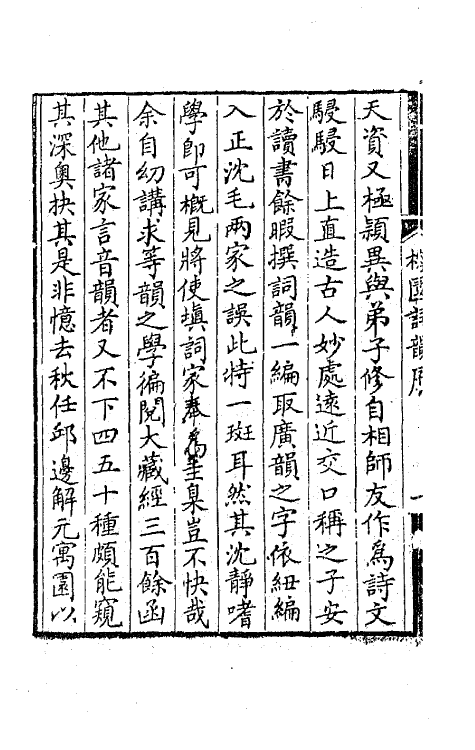 天資又極穎異與弟子修自相師友作爲詩文
駸駸日上直造古人妙處遠近交口稱之子安
於讀書餘暇撰詞韻一編取廣韻之字依紐編
入正沈毛兩家之誤此特一斑耳然其沈靜嗜
學卽可概見將使塡詞家奉爲圭臬豈不快哉
余自幼講求等韻之學徧閱大藏經三百餘函
其他諸家言音韻者又不下四五十種頗能窺
其深奧抉其是非憶去秋任邱邊解元寓園以
園詞韻序
一